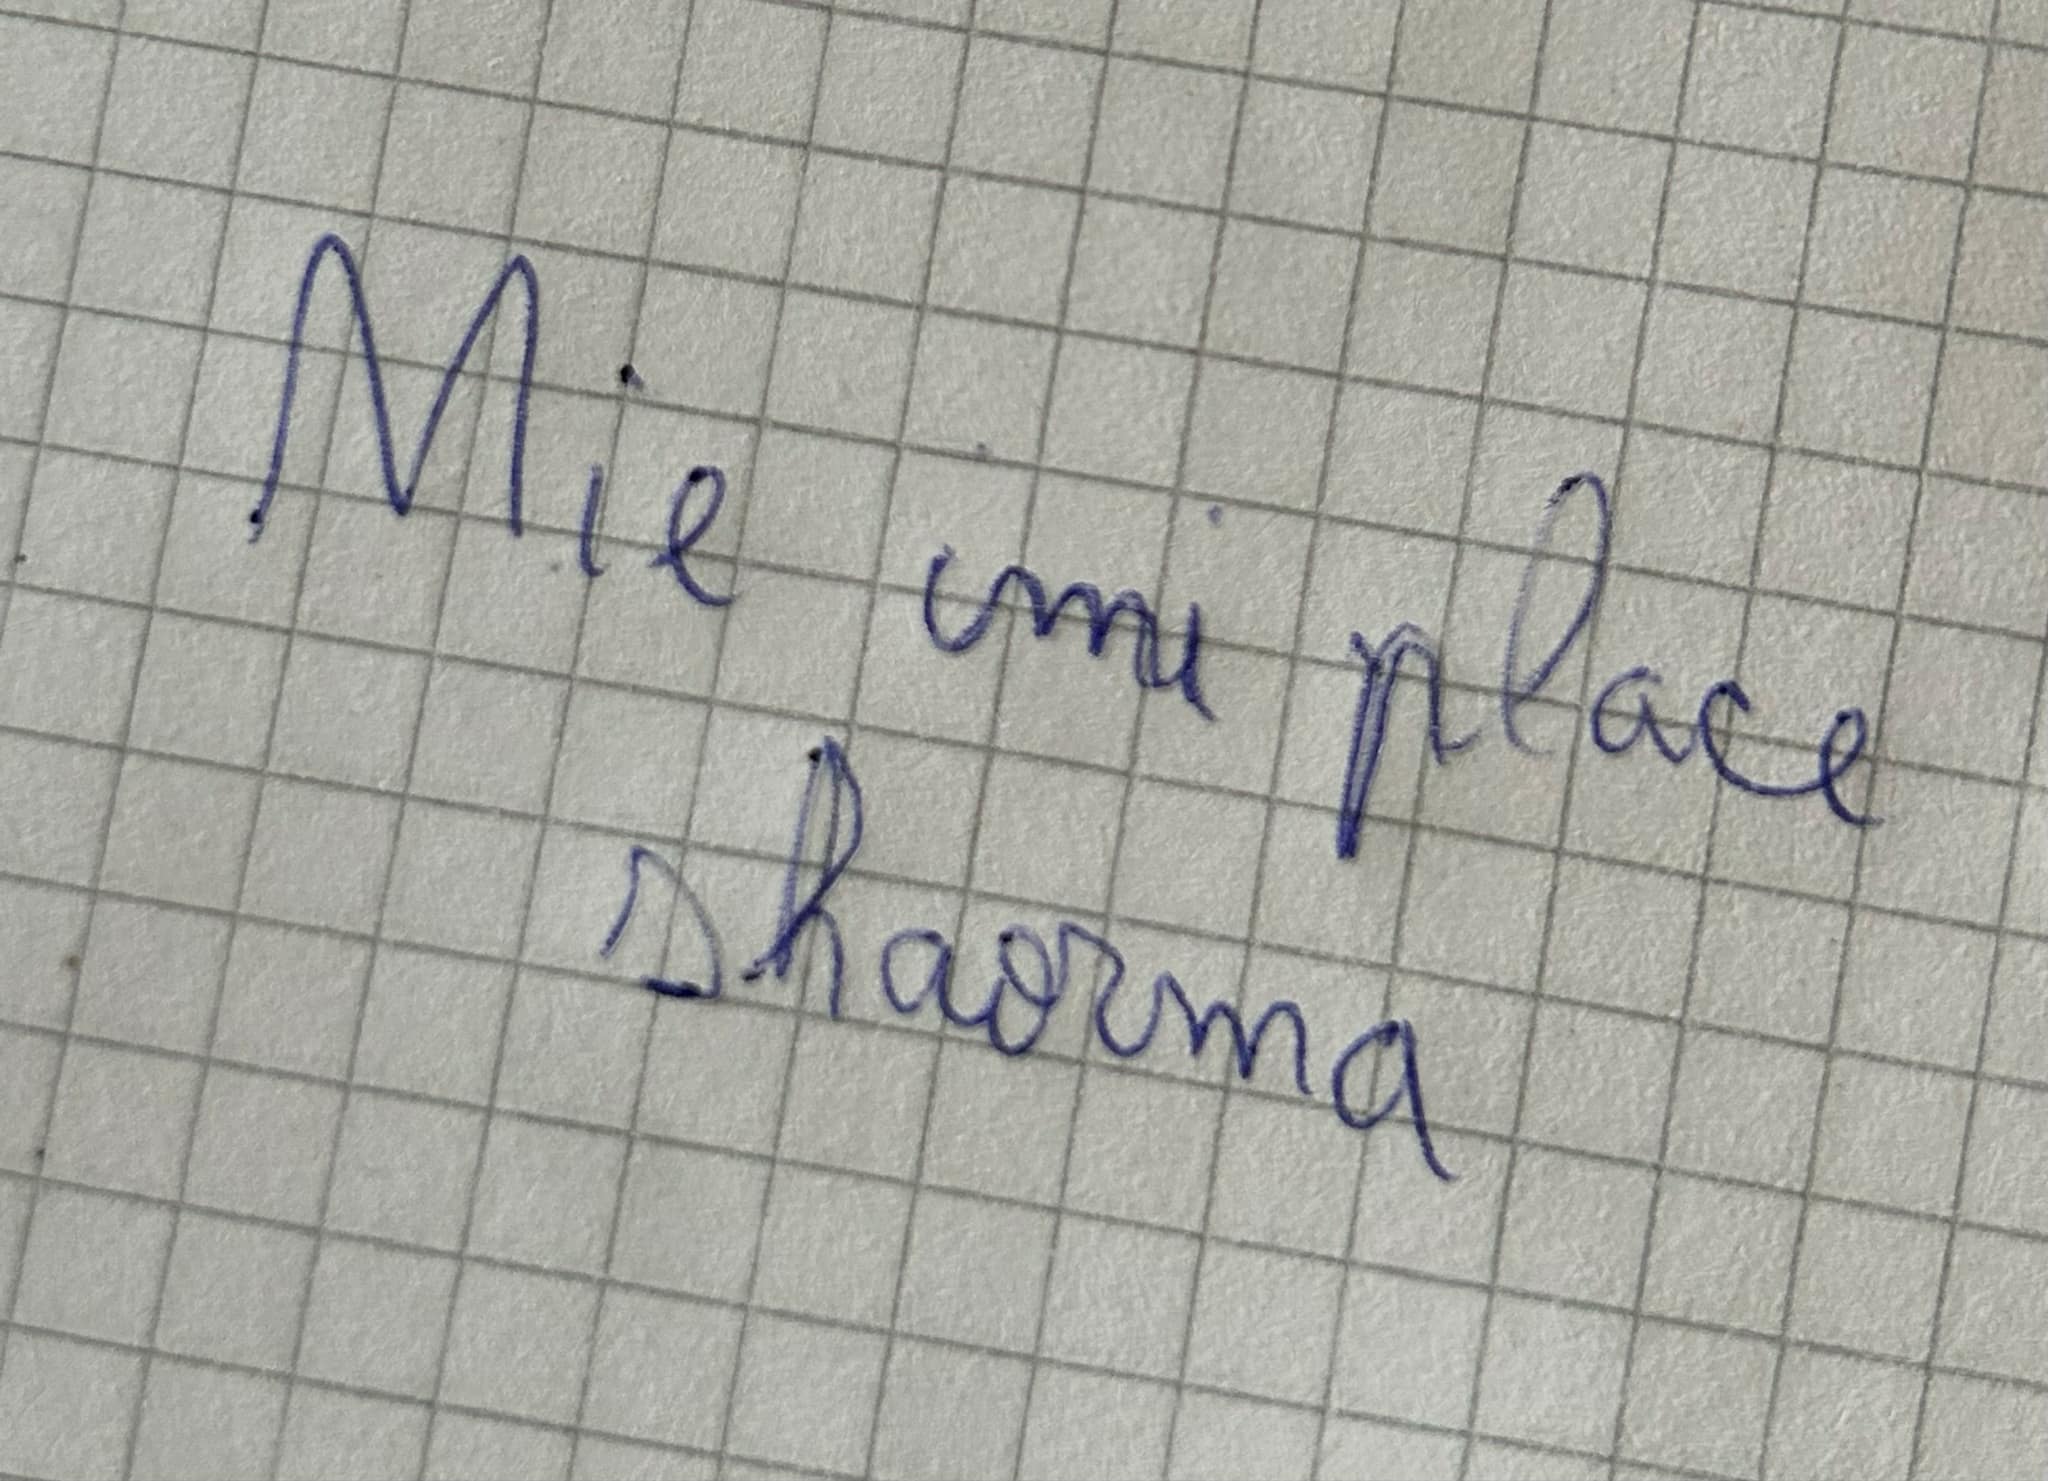 Mie imi place
shaorma